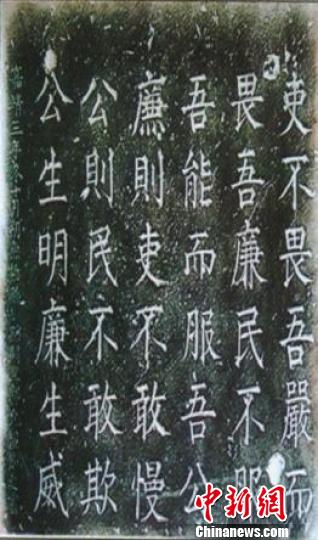 吏不畏吾嚴而
畏吾廉民不服
吾能而服吾公
廉則吏不敢慢
公則民不敢欺
公生明廉生威
嘉靖三年
中新網
Chinanews.com